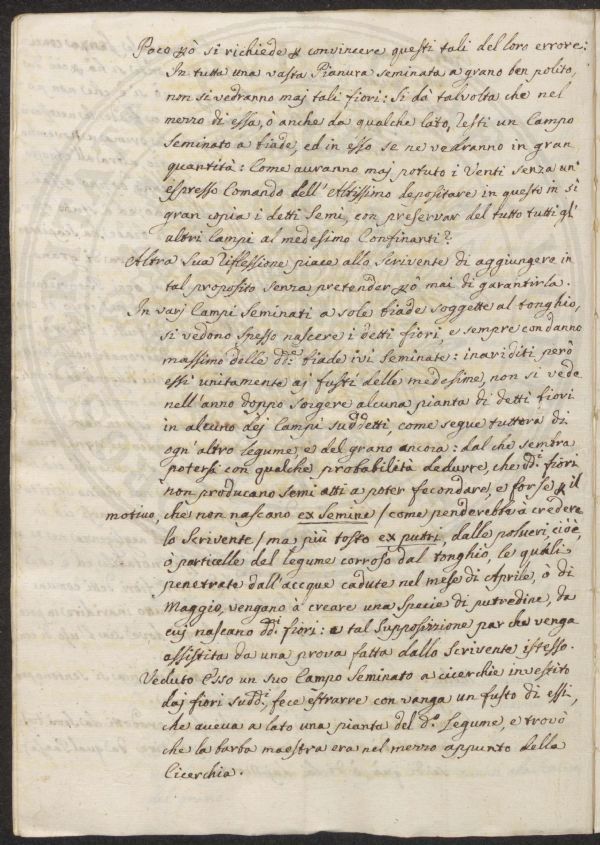 Poco ꝑò si richiede ꝑ convincere questi tali del loro errore:
In tutta una vasta Pianura seminata a grano ben polito,
non si vedranno maj tali fiori: Si dà talvolta che nel
mezzo di essa, ò anche da qualche lato, resti un Campo
seminato a biade, ed in esso se ne vedranno in gran
quantità: Come avranno maj potuto i Venti senza un'
espresso Comando dell'Altissimo depositare in questo in sì
gran copia i detti Semi, con preservar del tutto tutti gl'
altri Campi al medesimo Confinanti?
Altra sua riflessione piace allo scrivente di aggiungere in
tal proposito senza pretender ꝑò mai di garantirla.
In varj Campi seminati a sole biade soggette al tonghio,
si vedono spesso nascere i detti fiori, e sempre con danno
massimo delle dd.e biade ivi seminate: inariditi però
essi unitamente aj fusti delle medesime, non si vede
nell'anno doppo sorgere alcuna pianta di detti fiori
in alcuno dej Campi suddetti, come segue tuttora di
ogn'altro legume, e del grano ancora: dal che sembra
potersi con qualche probabilità dedurre, che dd.i fiori
non producano semi atti a poter fecondare, e forse ꝑ il
motivo, che non nascano ex semine / come penderebbe à credere
lo scrivente / ma più tosto ex putri, dalle polveri, cioè,
ò particelle del legume corroso dal tonghio, le quali
penetrate dall'accque cadute nel mese di Aprile, ò di
Maggio, vengano à creare una specie di putredine, da
cuj nascano dd.i fiori: e tal supposizzione par che venga
assistita da una prova fatta dallo scrivente istesso.
Veduto Esso un suo Campo seminato a cicerchie investito
daj fiori sudd.i, fece estrarre con vanga un fusto di essi,
che aveva a lato una pianta del d.o Legume, e trovò
che la barba maestra era nel mezzo appunto della
Cicerchia.